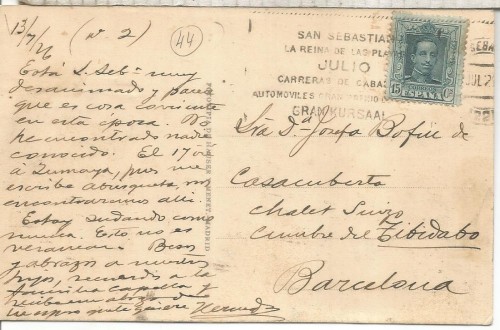 13/7/26 (nº 2)
44
Está S. Sebⁿ muy
desanimado y parece
que es cosa corriente
en esta época. No
he encontrado nadie
conocido. El 17
á Zumaya, pues me
escribe
encontraremos allí.
Estoy sudando como
nunca. Esto no es
veranear. Besos
y abrazos a
hijos, recuerdos a la
familia Capella y
SAN SEBASTIAN
LA REINA DE LAS PLAYAS
JULIO
CARRERAS DE CABAL
AUTOMOVILES GRAN PREMIO
GRAN KURSAAL
15 Cs
ESPAÑA
JUL 2
Sra Dª Josefa Bofill de
Casacuberta
Chalet Suizo
Cumbre del Tibidabo
Barcelona
MADRID